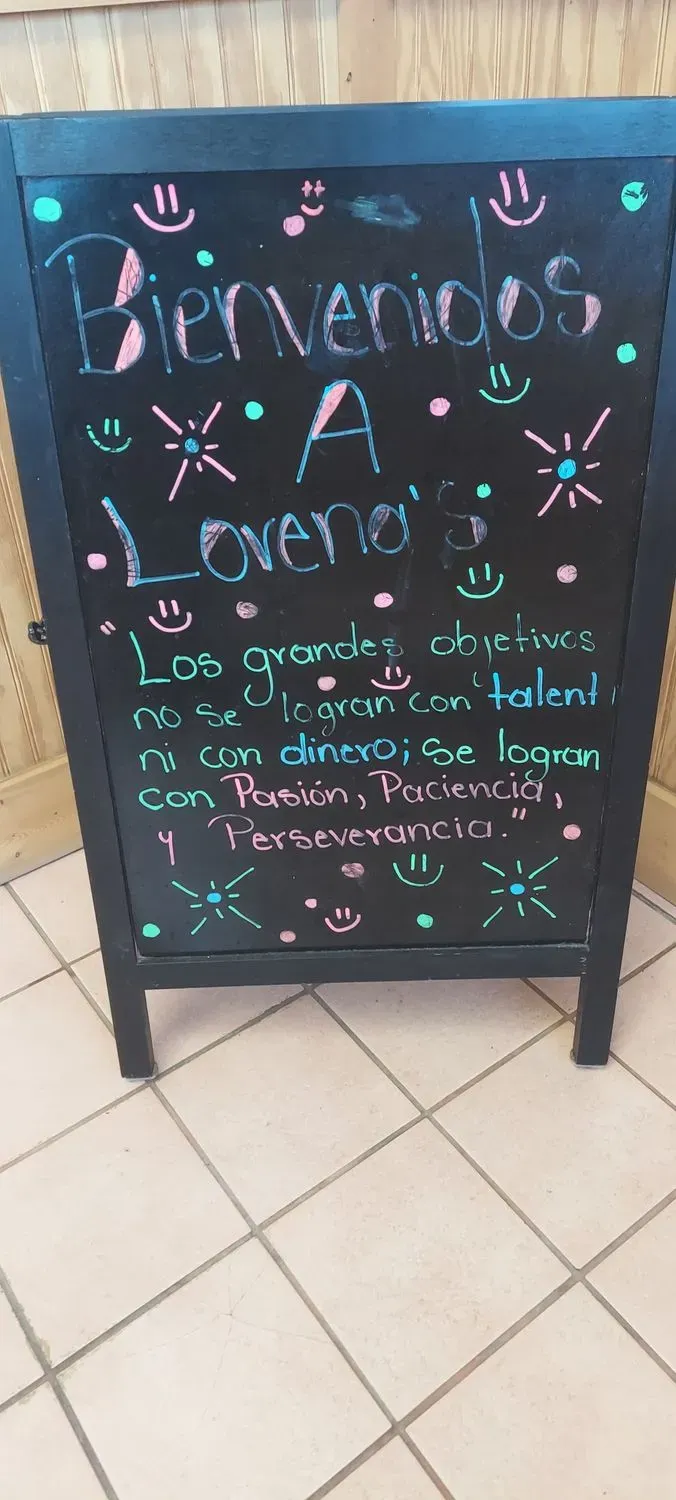 Bienvenidos
A
Lorena's
"Los grandes objetivos
no se logran con talent
ni con dinero; se logran
con Pasión, Paciencia,
y Perseverancia."